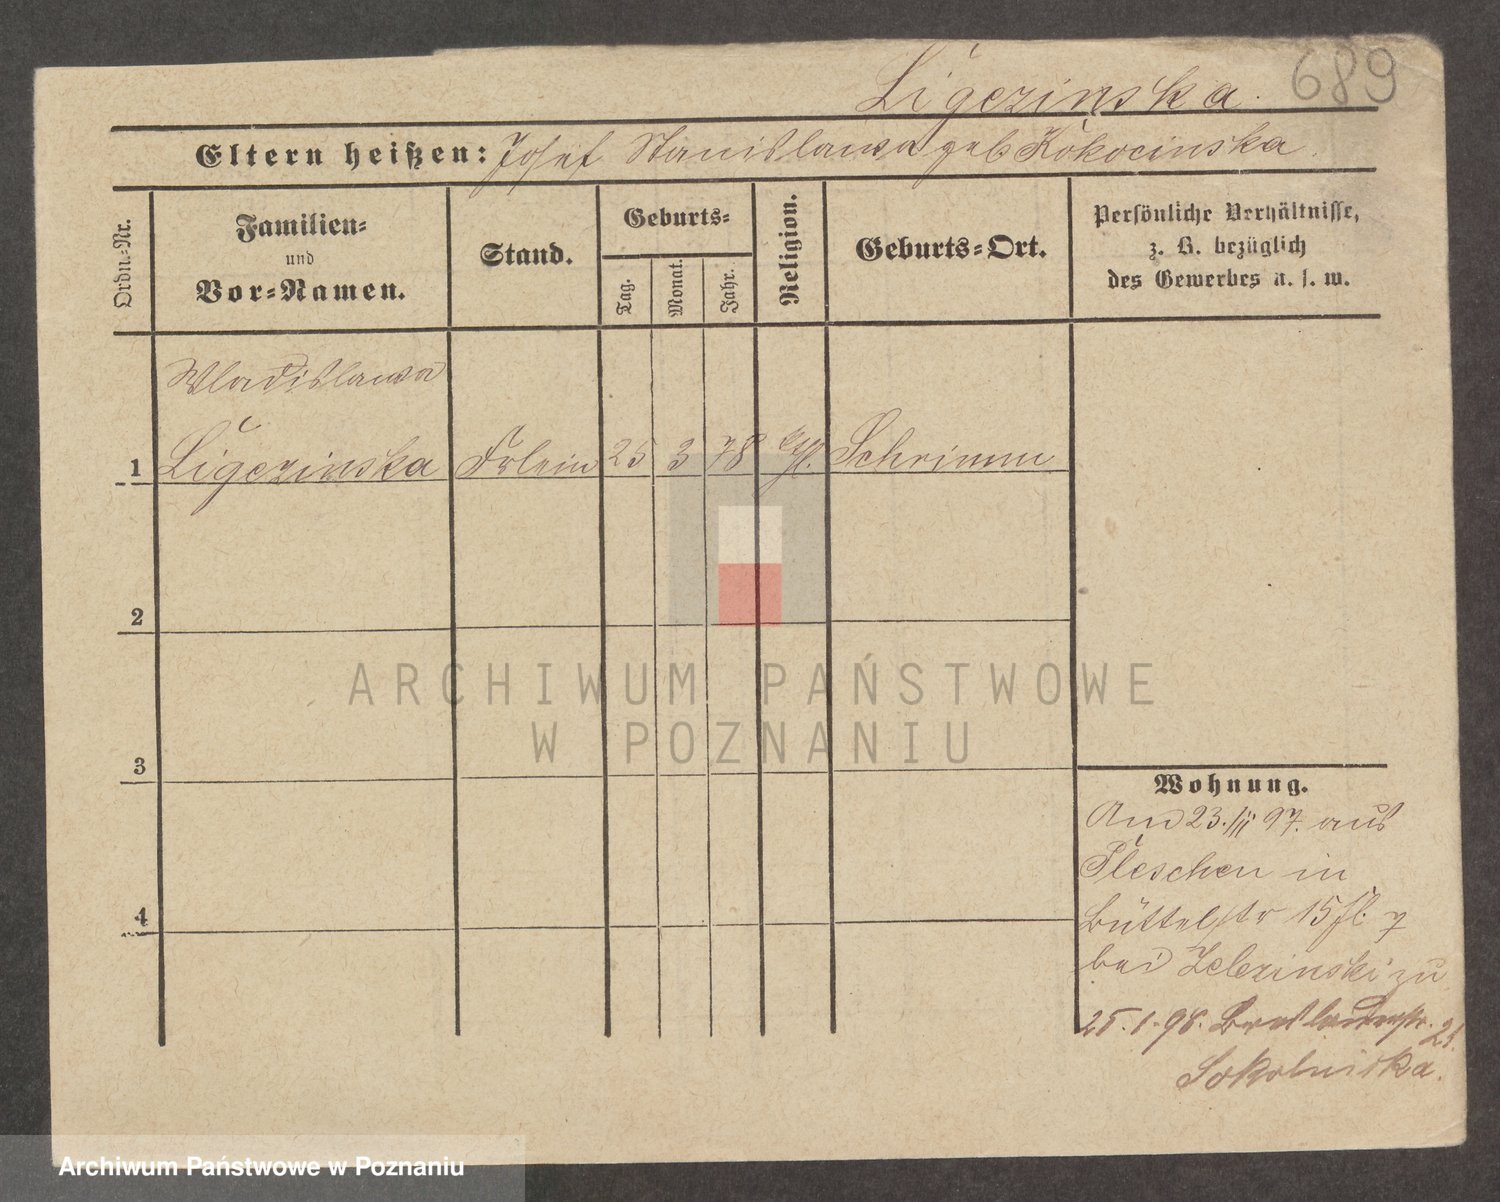 Ligezinska. 689
Eltern heißen: Josef Stanislawa geb Kokocinska
Ordn.-Nr.
Familien-
und
Vor-Namen.
Stand.
Geburts-
Tag.
Monat.
Jahr.
Religion.
Geburts-Ort.
Persönliche Verhältnisse,
z. B. bezüglich
des Gewerbes u. s. w.
Wladislawa
1 Ligezinska Frlein 25 3 78 ktl. Schrimm
2
3
4
Wohnung.
Am 23./II 97. aus
Pleschen in
Büttelstr 15 fl.
bei Zelezinski zu
25.1.98. Breslauerstr. 21.
Sokolniska.
ARCHIWUM PAŃSTWOWE
W POZNANIU
Archiwum Państwowe w Poznaniu